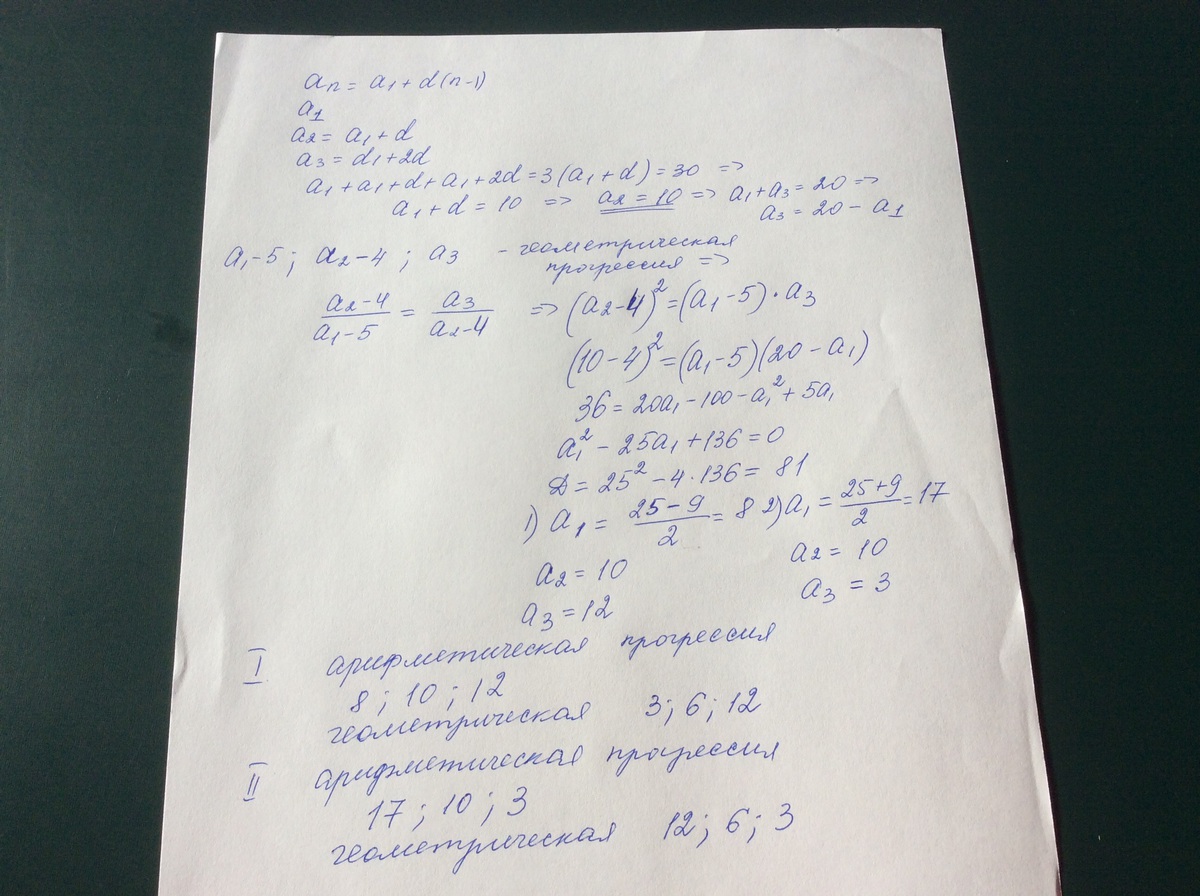 an = a1 + d(n-1)
a1
a2 = a1 + d
a3 = d1 + 2d
a1 + a1 + d + a1 + 2d = 3(a1 + d) = 30 =>
a1 + d = 10 => a2 = 10 => a1 + a3 = 20 =>
a3 = 20 - a1
a1-5 ; a2-4 ; a3 - геометрическая
прогрессия =>
(a2-4)/(a1-5) = a3/(a2-4) => (a2-4)² = (a1-5)·a3
(10-4)² = (a1-5)(20-a1)
36 = 20a1 - 100 - a1² + 5a1
a1² - 25a1 + 136 = 0
D = 25² - 4·136 = 81
1) a1 = (25-9)/2 = 8 2) a1 = (25+9)/2 = 17
a2 = 10 a2 = 10
a3 = 12 a3 = 3
I арифметическая прогрессия
8 ; 10 ; 12
геометрическая 3; 6; 12
II арифметическая прогрессия
17 ; 10 ; 3
геометрическая 12; 6; 3